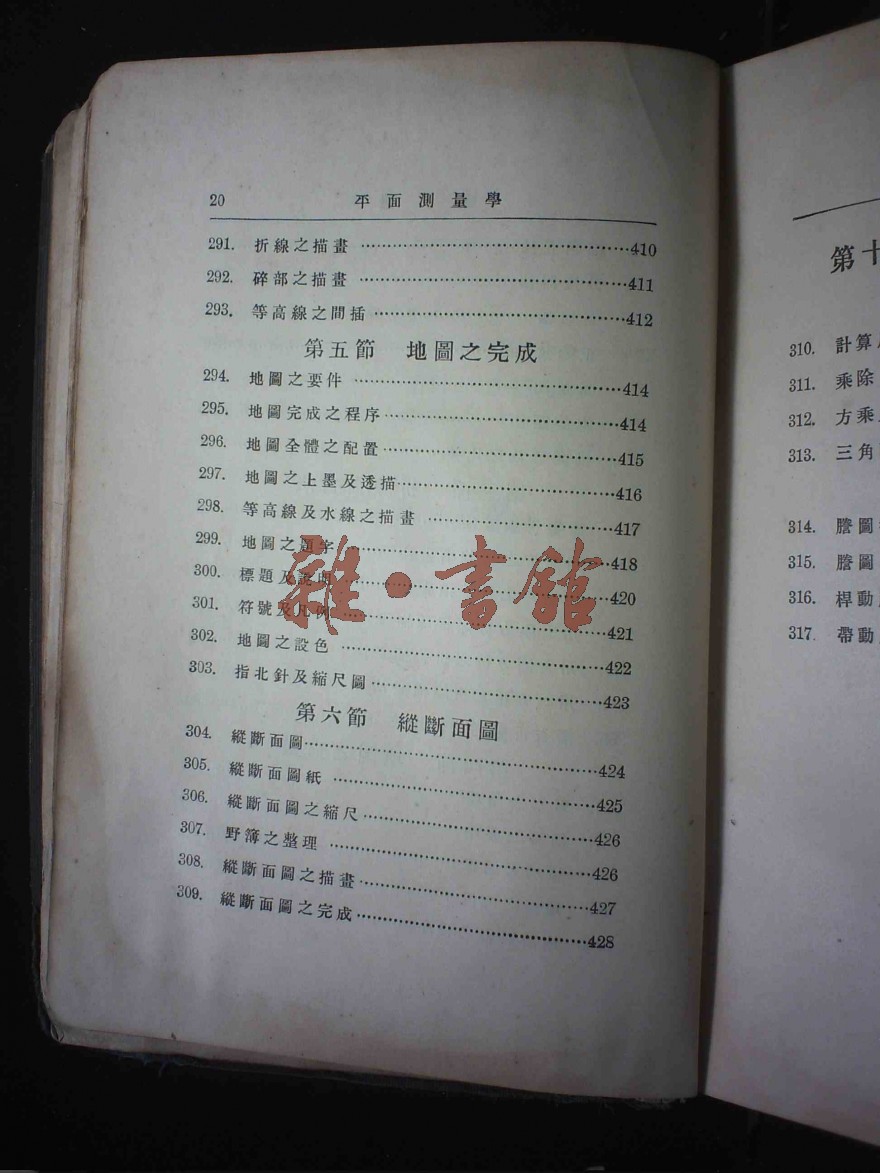 20 平面測量學
291. 折線之描畫 410
292. 碎部之描畫 411
293. 等高線之間插 412
第五節 地圖之完成
294. 地圖之要件 414
295. 地圖完成之程序 414
296. 地圖全體之配置 415
297. 地圖之上墨及透描 416
298. 等高線及水線之描畫 417
299. 地圖之題字 418
300. 標題及說明 420
301. 符號及凡例 421
302. 地圖之設色 422
303. 指北針及縮尺圖 423
第六節 縱斷面圖
304. 縱斷面圖 424
305. 縱斷面圖紙 425
306. 縱斷面圖之縮尺 426
307. 野簿之整理 426
308. 縱斷面圖之描畫 427
309. 縱斷面圖之完成 428
雜·書館
第十
310. 計算
311. 乘除
312. 方乘
313. 三角
314. 謄圖
315. 謄圖
316. 桿動
317. 帶動